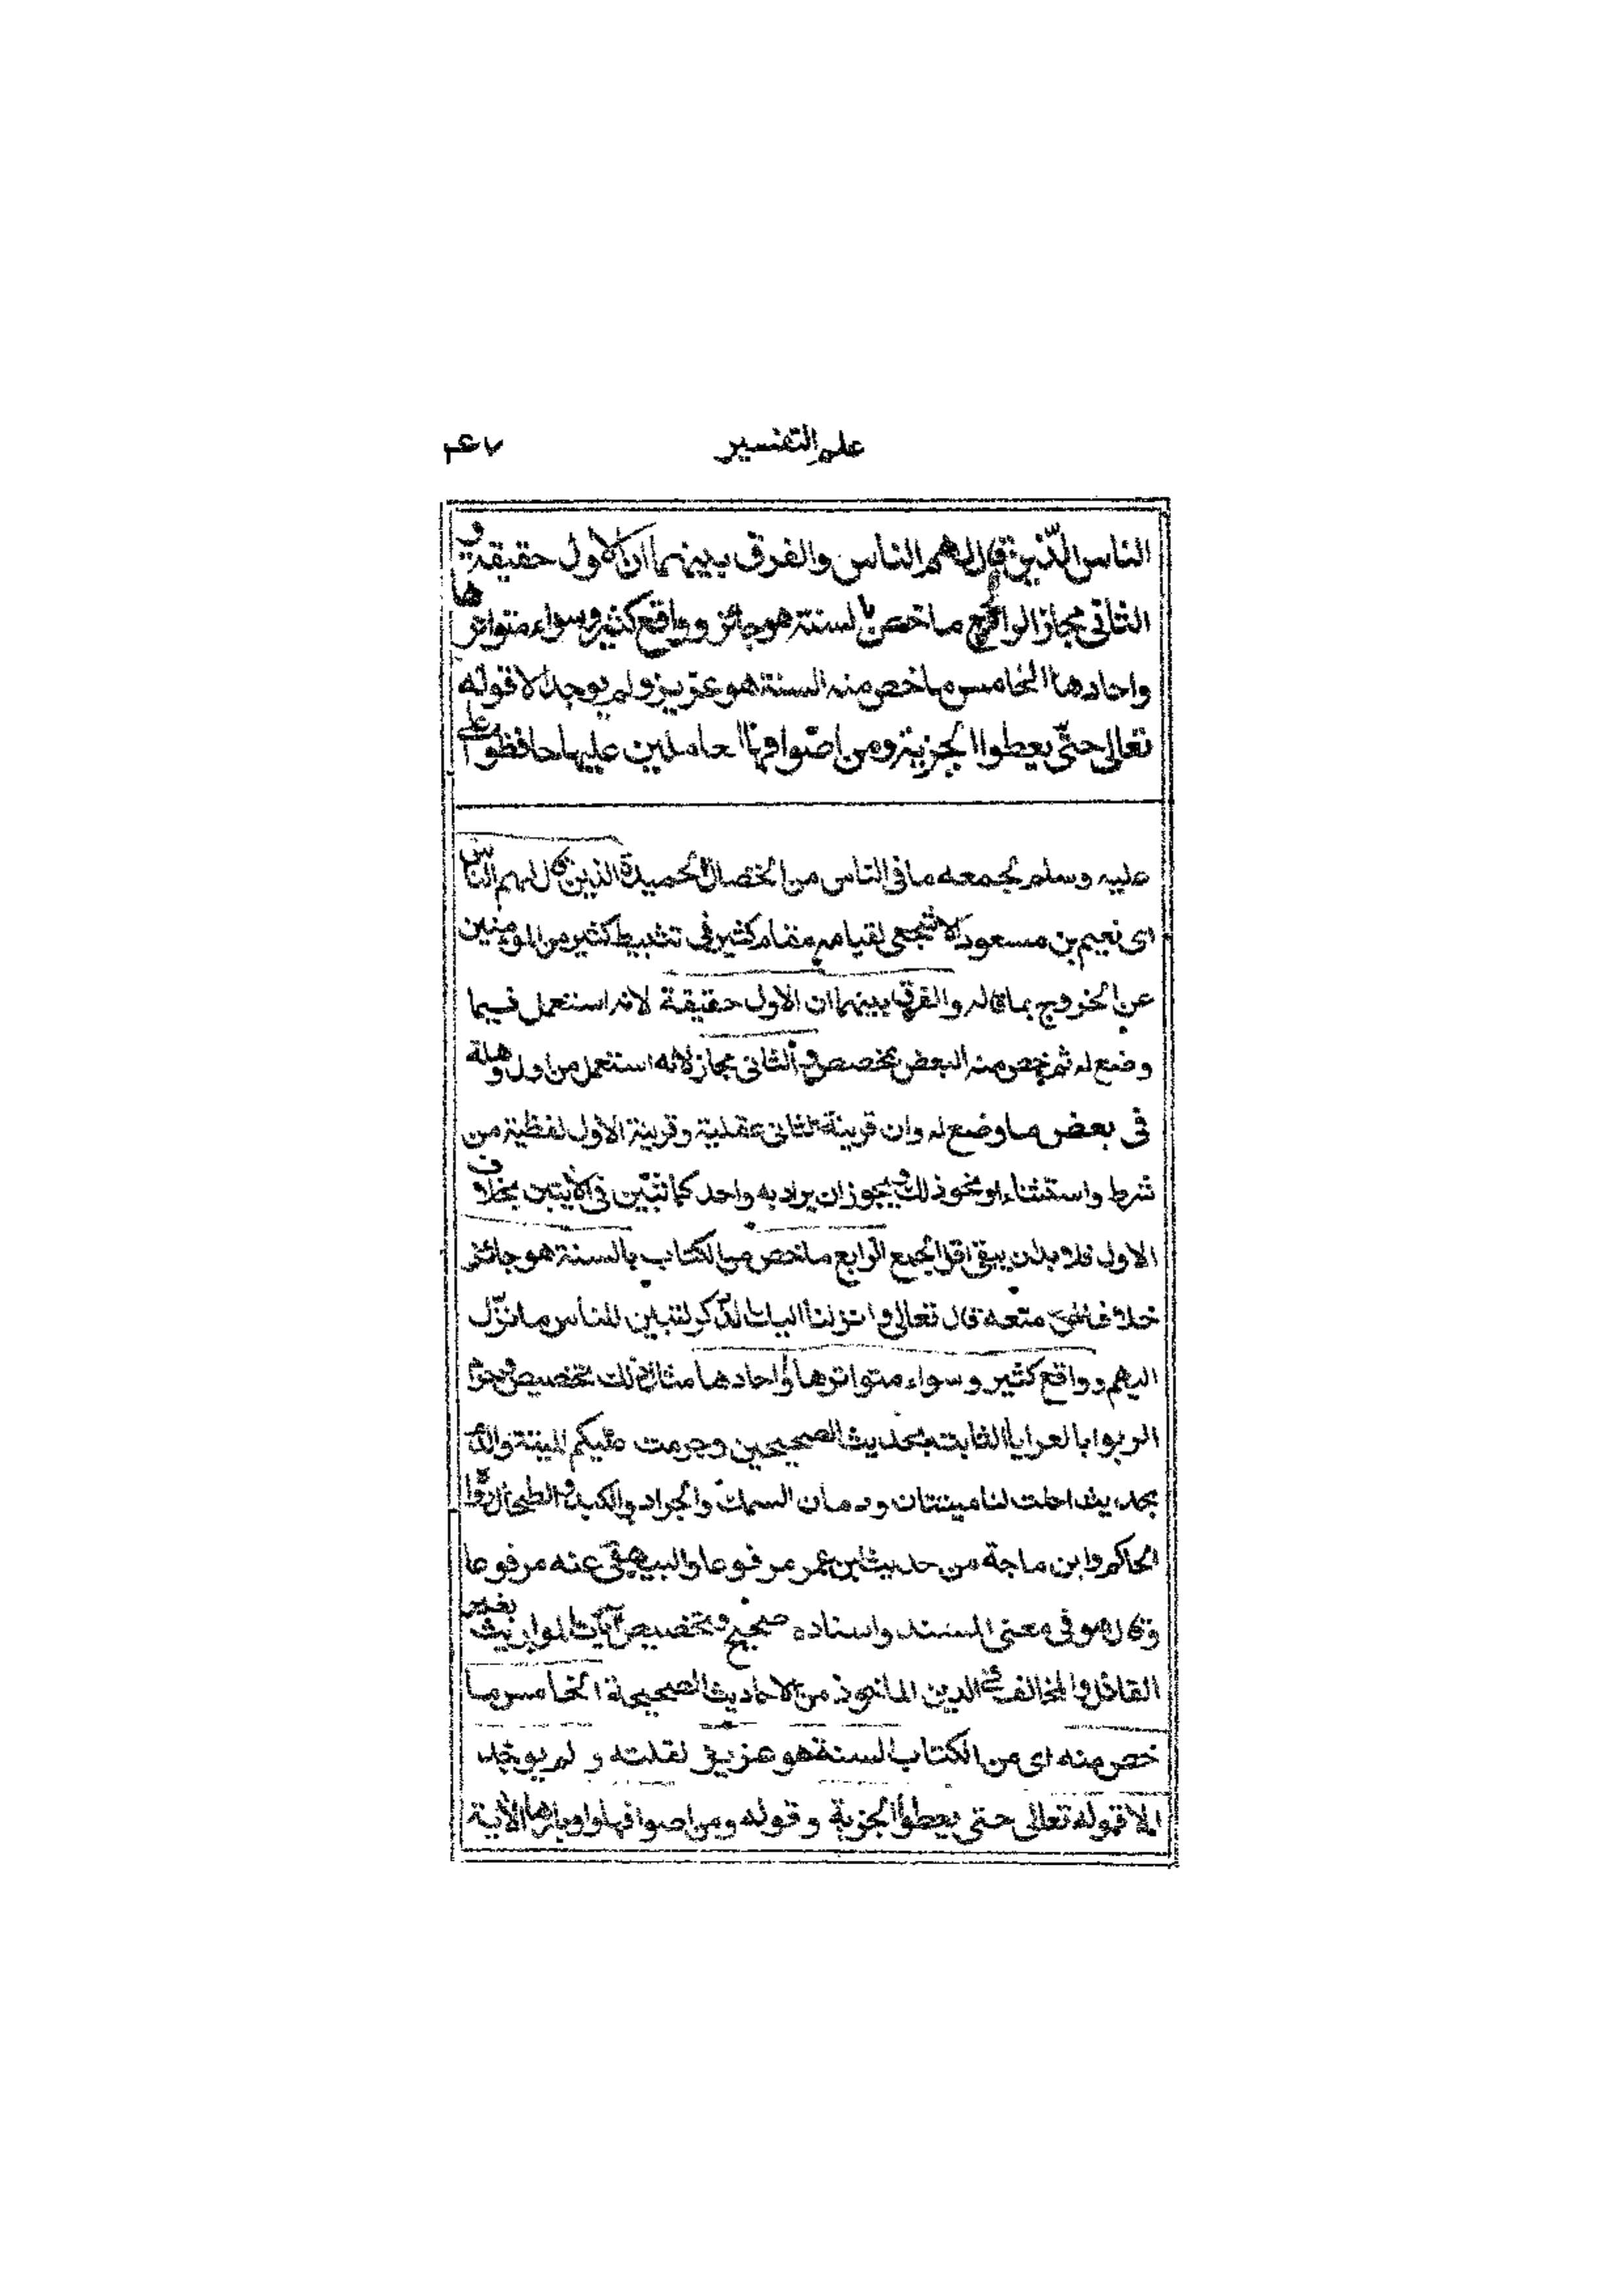 علم التفسير ٤٧
الناس الّذين قال لهم الناس والفرق بينهما ان الاول حقيقة و
الثانى مجاز الرابع ما خص بالسنة هو جائز وواقع كثير وسواء متواترها
واحادها الخامس ما خص منه السنة هو عزيز ولم يوجد الا قوله
تعالى حتّى يعطوا الجزية ومن اصوافها العاملين عليها حافظوا على
عليه وسلم لجمعه ما فى الناس من الخصال الحميدة الذين قال لهم الناس
اى نعيم بن مسعود الاشجعى لقيامه مقام كثير فى تثبيط كثير من المومنين
عن الخروج بما قاله والفرق بينهما ان الاول حقيقة لانه استعمل فيما
وضع له ثم خص منه البعض بمخصص و الثانى مجاز لانه استعمل من اول وهلة
فى بعض ما وضع له وان قرينة الثانى عقلية وقرينة الاول لفظية من
شرط واستثناء او نحو ذلك و يجوز ان يراد به واحد كما تبيّن فى الآيتين بخلاف
الاول فلا بد ان يبقى اقل الجمع الرابع ما خص من الكتاب بالسنة هو جائز
خلافا لمن منعه قال تعالى وانزلنا اليك الذّكر لتبين للناس ما نزّل
اليهم وواقع كثير وسواء متواترها واحادها مثال ذلك تخصيص
الربوا بالعرايا الثابت بحديث الصحيحين وحرمت عليكم الميتة والدم
بحديث احلت لنا ميتتان ودمان السمك والجراد والكبد والطحال رواه
الحاكم وابن ماجة من حديث ابن عمر مرفوعا والبيهقى عنه مرفوعا
وقال هو فى معنى المسند واسناده صحيح وتخصيص آيات المواريث بغير
القاتل والمخالف فى الدين الماخوذ من الاحاديث الصحيحة الخامس ما
خص منه اى من الكتاب السنة هو عزيز لقلته و لم يوجد
الا قوله تعالى حتى يعطوا الجزية وقوله ومن اصوافها واوبارها الآية